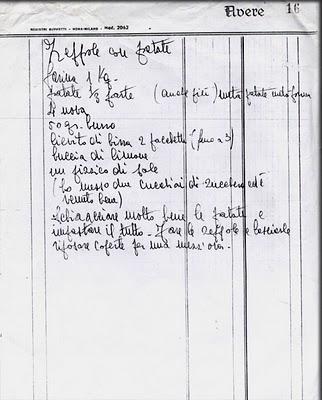 Avere 16
REGISTRI BUFFETTI - ROMA-MILANO - Mod. 2042
Zeffole con patate
farina 1 Kg.
patate 1/3 parte (anche più) metta patate metà farina
4 uova
50 gr. burro
lievito di birra 2 pacchetti (fino a 3)
buccia di limone
un pizzico di sale
(ho messo due cucchiai di zucchero ed è
venuto bene)
Schiacciare molto bene le patate e
impastare il tutto - Fare le zeffole e lasciarle
riposare coperte per una mezz'ora.